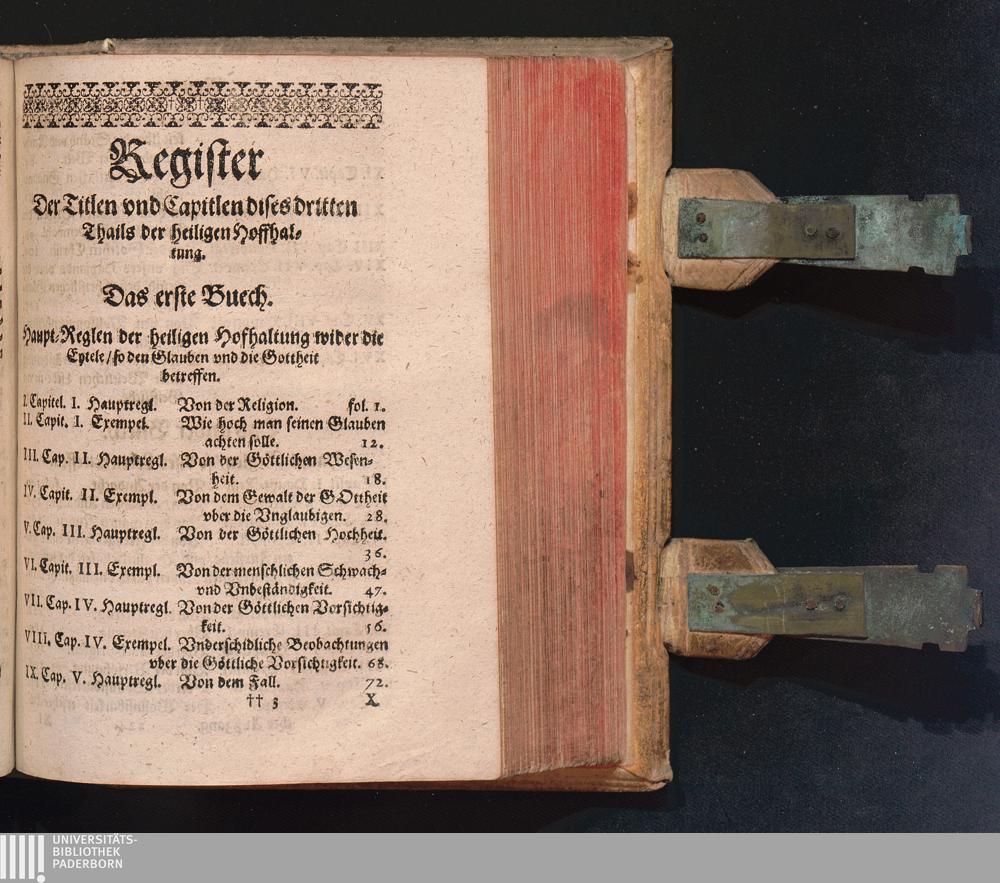 Register
Der Titlen vnd Capitlen dises dritten
Thails der heiligen Hoffhal-
tung.
Das erste Buech.
Haupt-Reglen der heiligen Hofhaltung wider die
Eytele / so den Glauben vnd die Gottheit
betreffen.
I. Capitel. I. Hauptregl. Von der Religion. fol. 1.
II. Capit. I. Exempel. Wie hoch man seinen Glauben
achten solle. 12.
III. Cap. II. Hauptregl. Von der Göttlichen Wesen-
heit. 18.
IV. Capit. II. Exempl. Von dem Gewalt der GOttheit
vber die Vnglaubigen. 28.
V. Cap. III. Hauptregl. Von der Göttlichen Hochheit.
36.
VI. Capit. III. Exempl. Von der menschlichen Schwach-
vnd Vnbeständigkeit. 47.
VII. Cap. IV. Hauptregl. Von der Göttlichen Vorsichtig-
keit. 56.
VIII. Cap. IV. Exempel. Vnderschidliche Beobachtungen
vber die Göttliche Vorsichtigkeit. 68.
IX. Cap. V. Hauptregl. Von dem Fall. 72.
†† 3 X.
UNIVERSITÄTS-
BIBLIOTHEK
PADERBORN